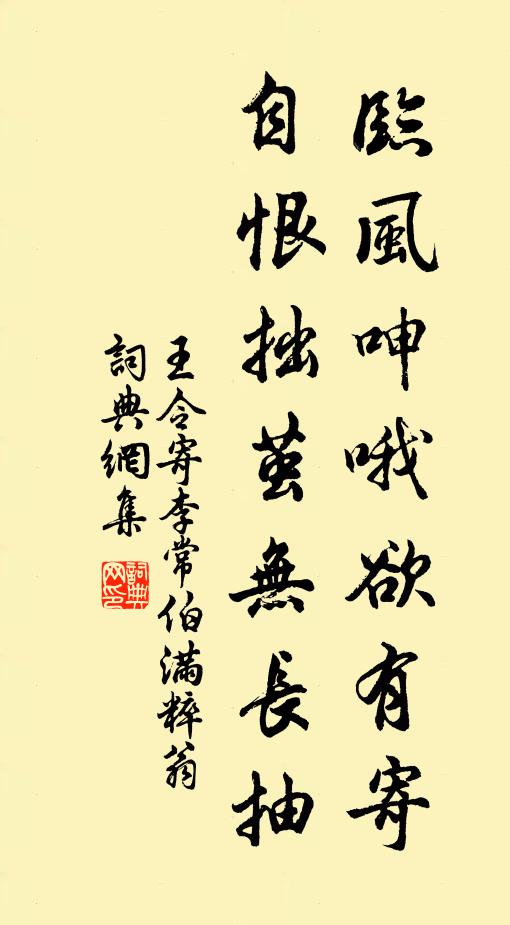 臨風呻哦欲有寄
自恨拙茧無長抽
王令寄李常伯滿粹翁
詞典網集
詞典网印